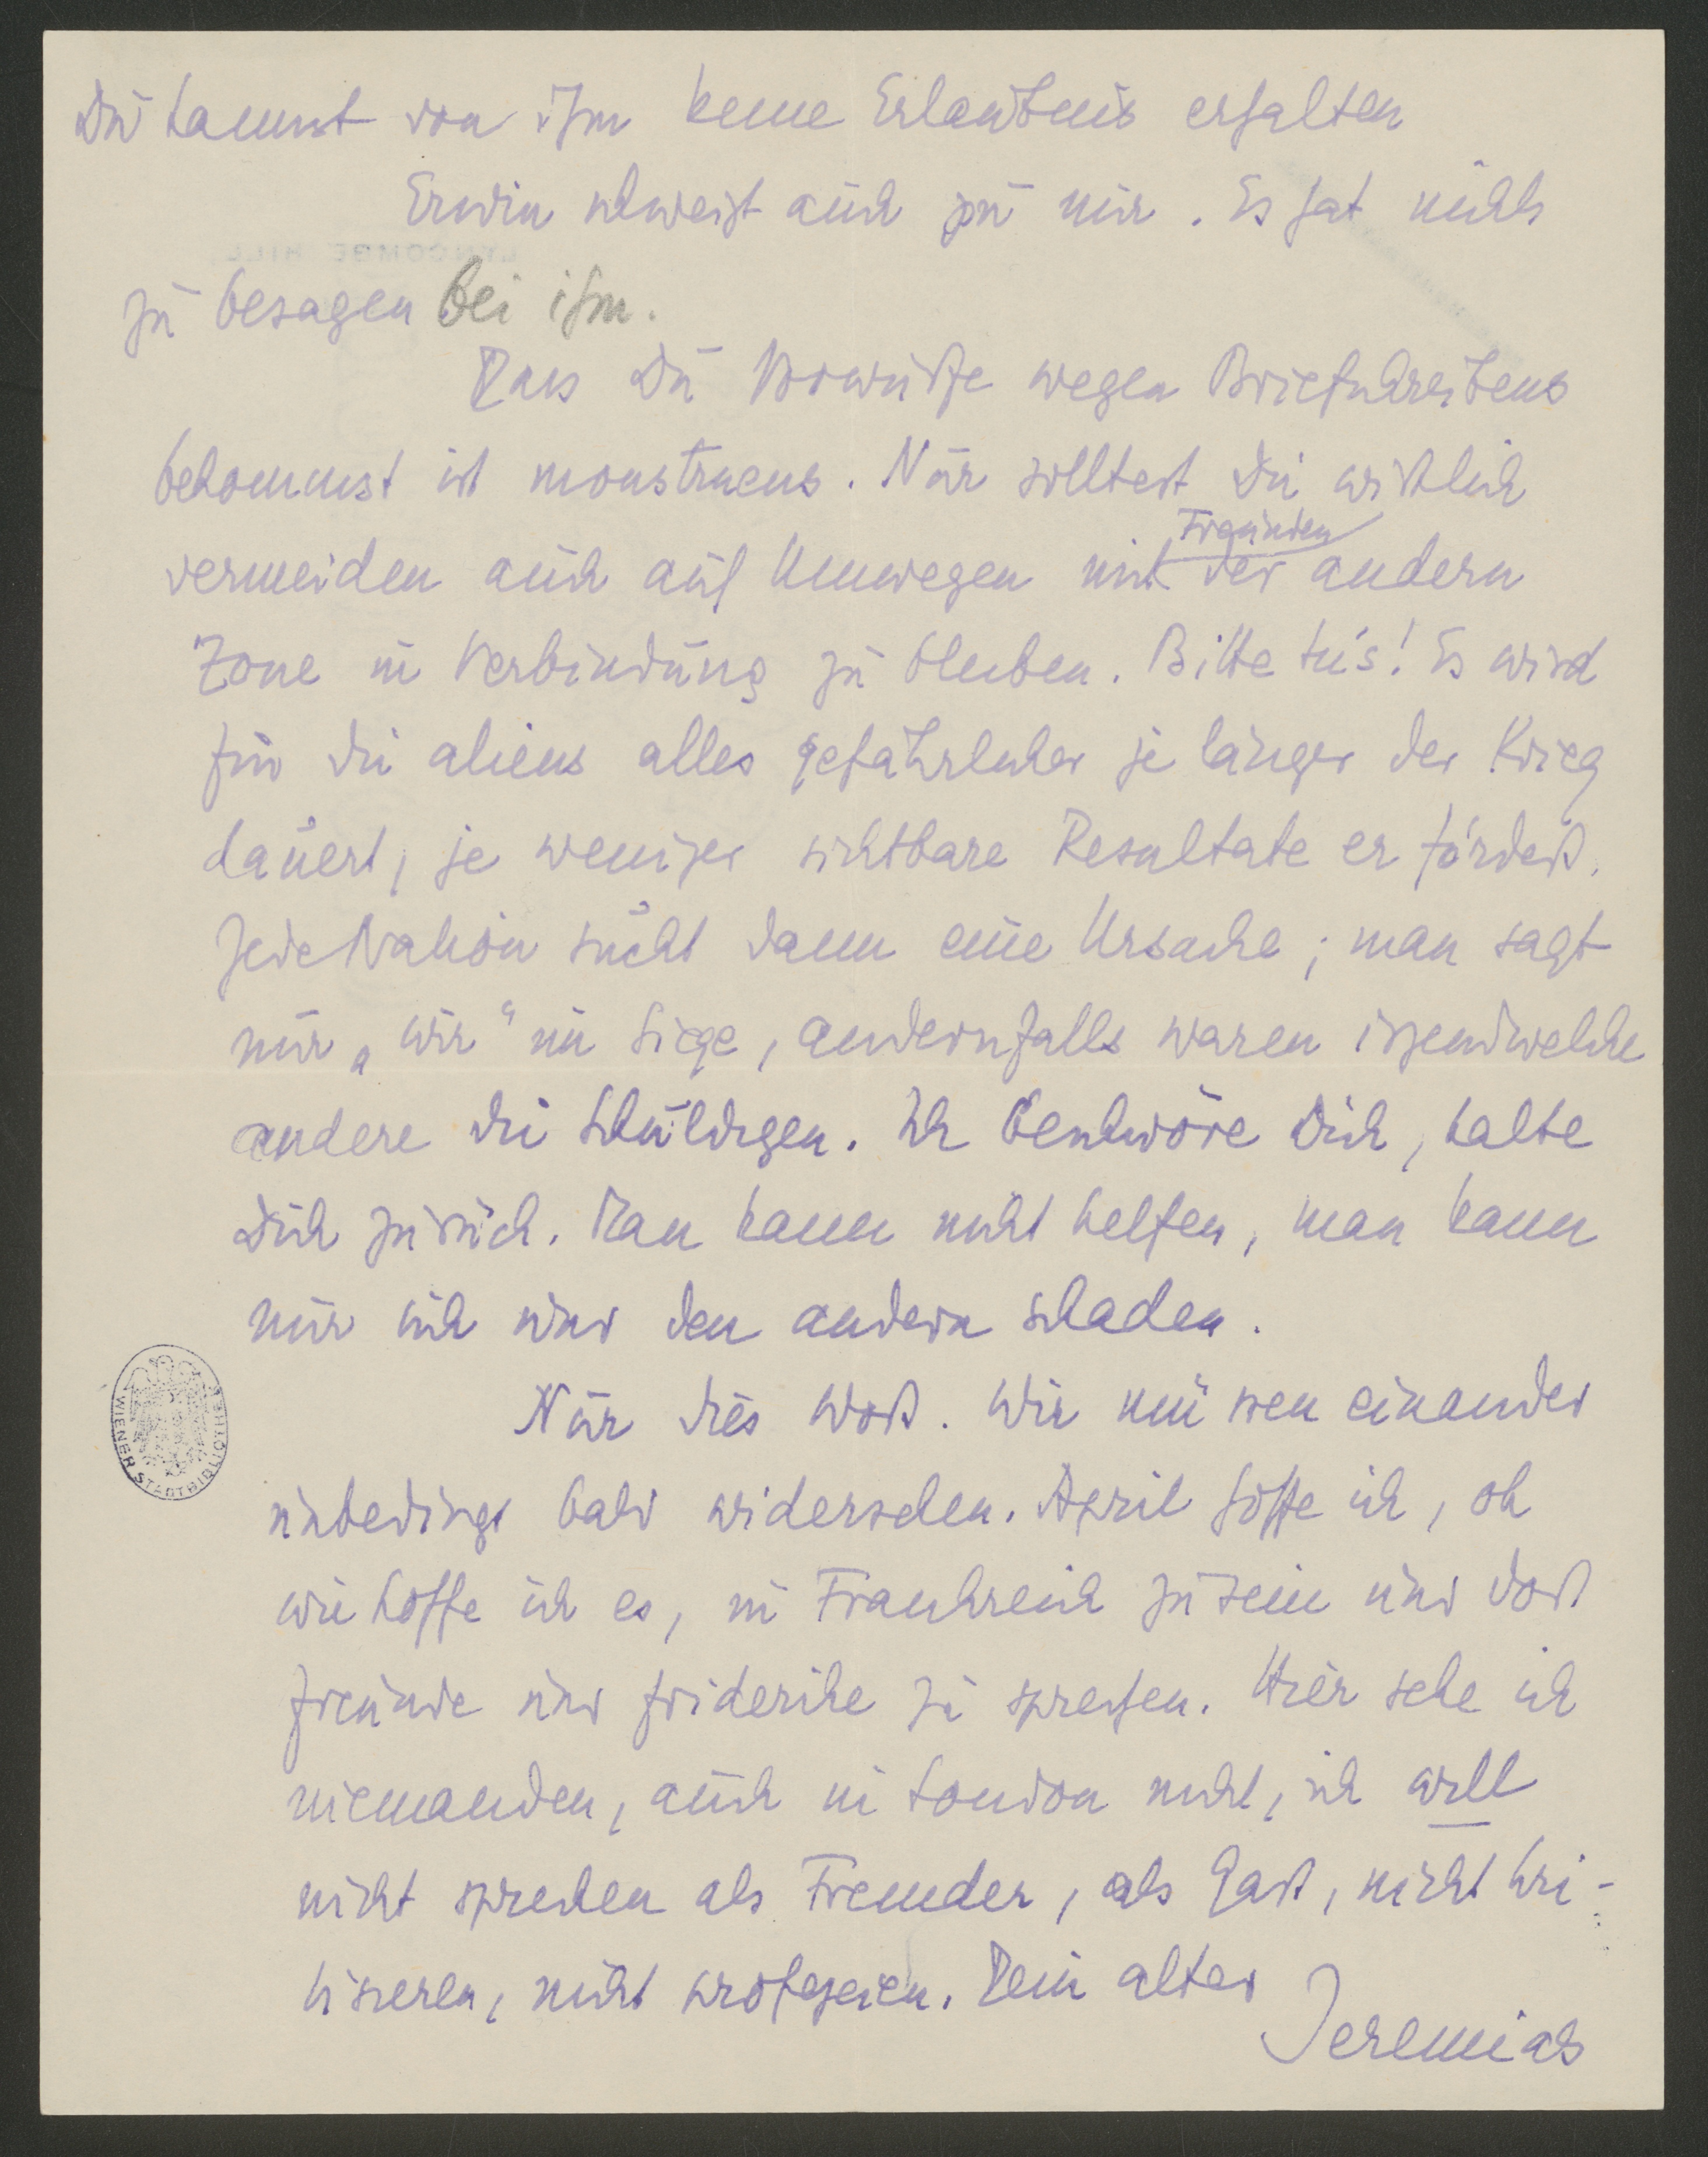 Du kannst von ihm keine Erlaubnis erhalten
Erwin schweigt auch zu mir. Es hat nichts
zu besagen bei ihm.
Dass Du Vorwürfe wegen Briefschreibens
bekommst ist monstrueus. Nur solltest Du wirklich
Freunden
vermeiden auch auf Umwegen mit der andern
Zone in Verbindung zu bleiben. Bitte tu's! Es wird
für die aliens alles gefährlicher je länger der Krieg
dauert, je weniger sichtbare Resultate er fördert.
Jede Nation sucht dann eine Ursache; man sagt
nur „wir“ im Siege, andernfalls waren irgendwelche
andere die Schuldigen. Ich beschwöre Dich, halte
Dich zurück. Man kann nicht helfen, man kann
nur sich und den andern schaden.
Nur dies Wort. Wir müssen einander
unbedingt bald widersehen. April hoffe ich, oh
wie hoffe ich es, in Frankreich zu sein und dort
Freunde und Friderike zu sprechen. Hier sehe ich
niemanden, auch in London nicht, ich will
nicht sprechen als Fremder, als Gast, nicht kri-
tisieren, nicht protegieren. Dein alter
Jeremias
WIENER STADTBIBLIOTHEK